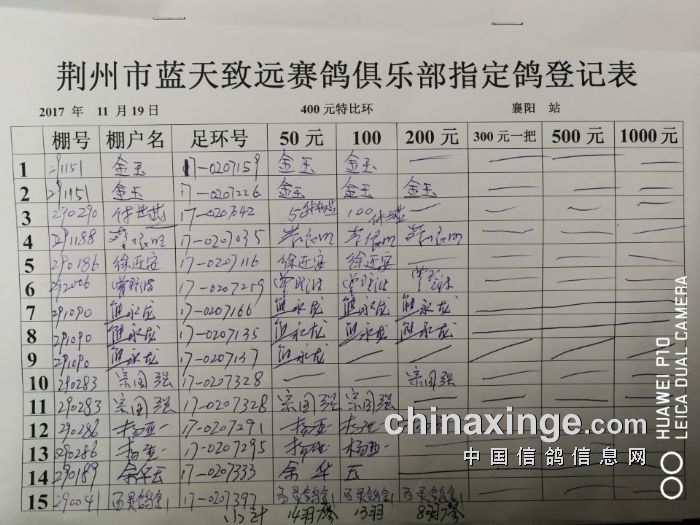 荆州市蓝天致远赛鸽俱乐部指定鸽登记表
2017 年 11 月 19 日 400 元特比环 襄阳 站
棚号 棚户名 足环号 50 元 100 200 元 300 元一把 500 元 1000 元
1 291151 金玉 17-0207159 金玉 金玉 — — — —
2 291151 金玉 17-0207226 金玉 金玉 金玉 — — —
3 290290 17-0207642 50 100 — — — —
4 291188 17-0207035 — — —
5 290186 徐近安 17-0207116 徐近安 徐近安 — — — —
6 292006 17-0207259 — — —
7 291090 熊永龙 17-0207166 熊永龙 熊永龙 熊永龙 — — —
8 291090 熊永龙 17-0207135 熊永龙 熊永龙 熊永龙 — — —
9 291090 熊永龙 17-0207137 熊永龙 — — — — —
10 290283 宗国强 17-0207328 — — 宗国强 — — —
11 290283 宗国强 17-0207328 宗国强 宗国强
12 290286 17-0207291
13 290286 17-0207295
14 290189 余华云 17-0207333 余华云
15 290041 17-0207397
小计 14羽 13羽 8羽
chinaxinge.com
中国信鸽信息网
HUAWEI P10
LEICA DUAL CAMERA